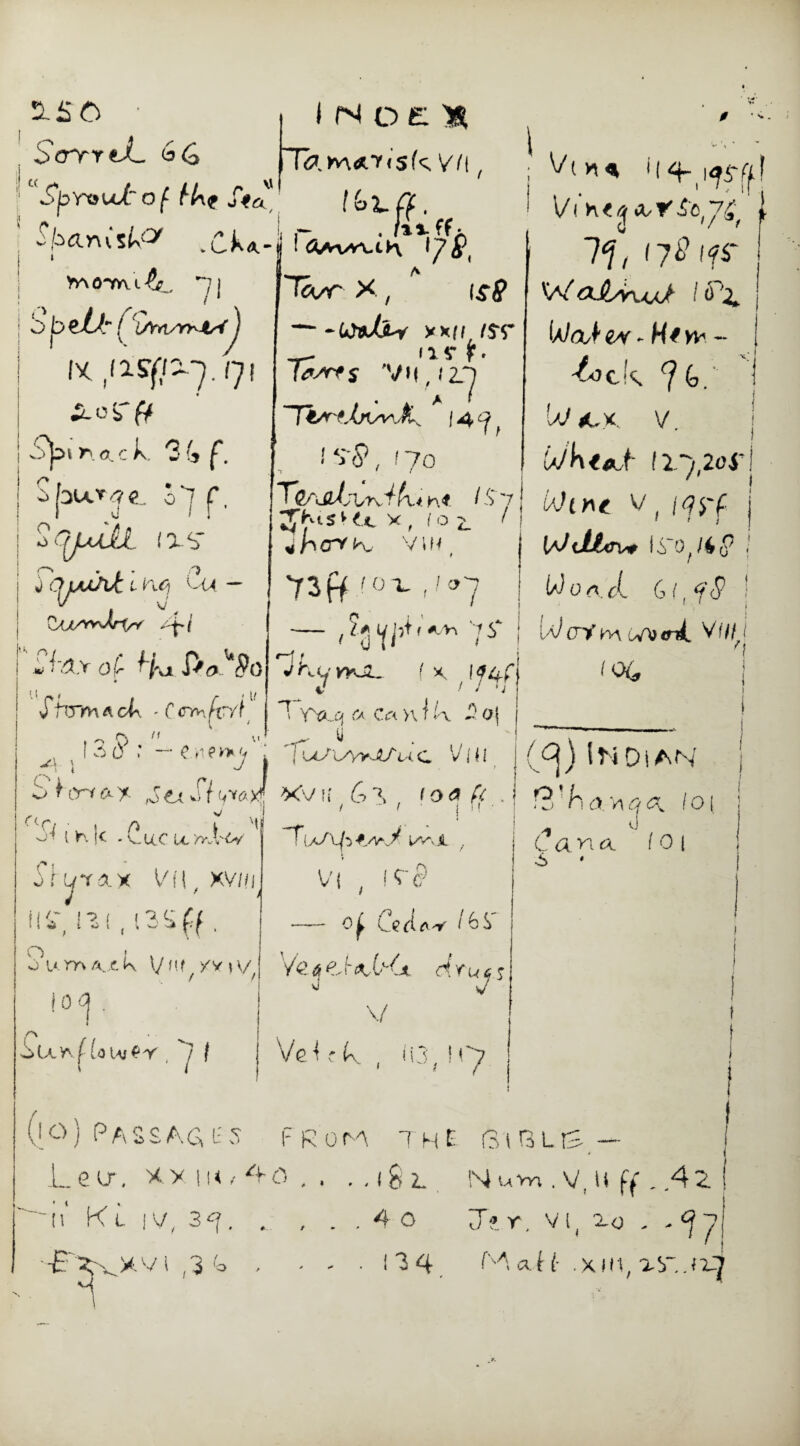 250
INDEX
Sorrel 66
"Sprout of the Sea",
Spanish .Cha-
momile 71
Spelt (Emmer)
ix, 125f, 127. 171
205 ff
Spinack 36 f.
Spurge 67 f.
Squill 125
Squirting Cu-
cumber 41
"Star of the
"Stomach-Comfort",
138: -enemy"
Storax See Styrax
"Stink-Cucumber"
Styrax VII, XVIII,
115, 121, 135 ff.
Sumach VIII, XXIV,
109.
Sunflower, 71
Tamarisk VII,
162 ff.
Tannin 178,
Tar X, 158
— -water XXII, 155
Tares VII, 127
Terebinth 149,
158, 170
Terebinthine 157
Thistle X, 102
Thorn VIII,
73 ff 102, 107
— , Egyptian 75
Thyme IX, 194f
Tragacanth 20f
Turmeric VIII
XVII, 63, 109 ff.
Turpentine,
VI, 158
— of Cedar 165
Vegetable drugs
V
Vetch, 113, 117
Vine 114, 195ff
Vinegar 50, 76,
79, 178 195
Walnut 182
Water-Hem-
lock 96.
Wax V.
Wheat 127, 205
Wine V, 195f
Willow 150, 168
Woad 61, 98
Wormwood VIII,
106,
(9) INDIAN
Bhanga 101
Cana 101
(10) PASSAGES FROM THE BIBLE —
Lev. XXIII, 40 . . . . 182 Num. V, 11 ff . . 42
ii Ki IV, 39. . . . . 40 Jer. VI, 20 . . 97
XVI, 36 . . . . 134 Matt. XIII, 25. . 127